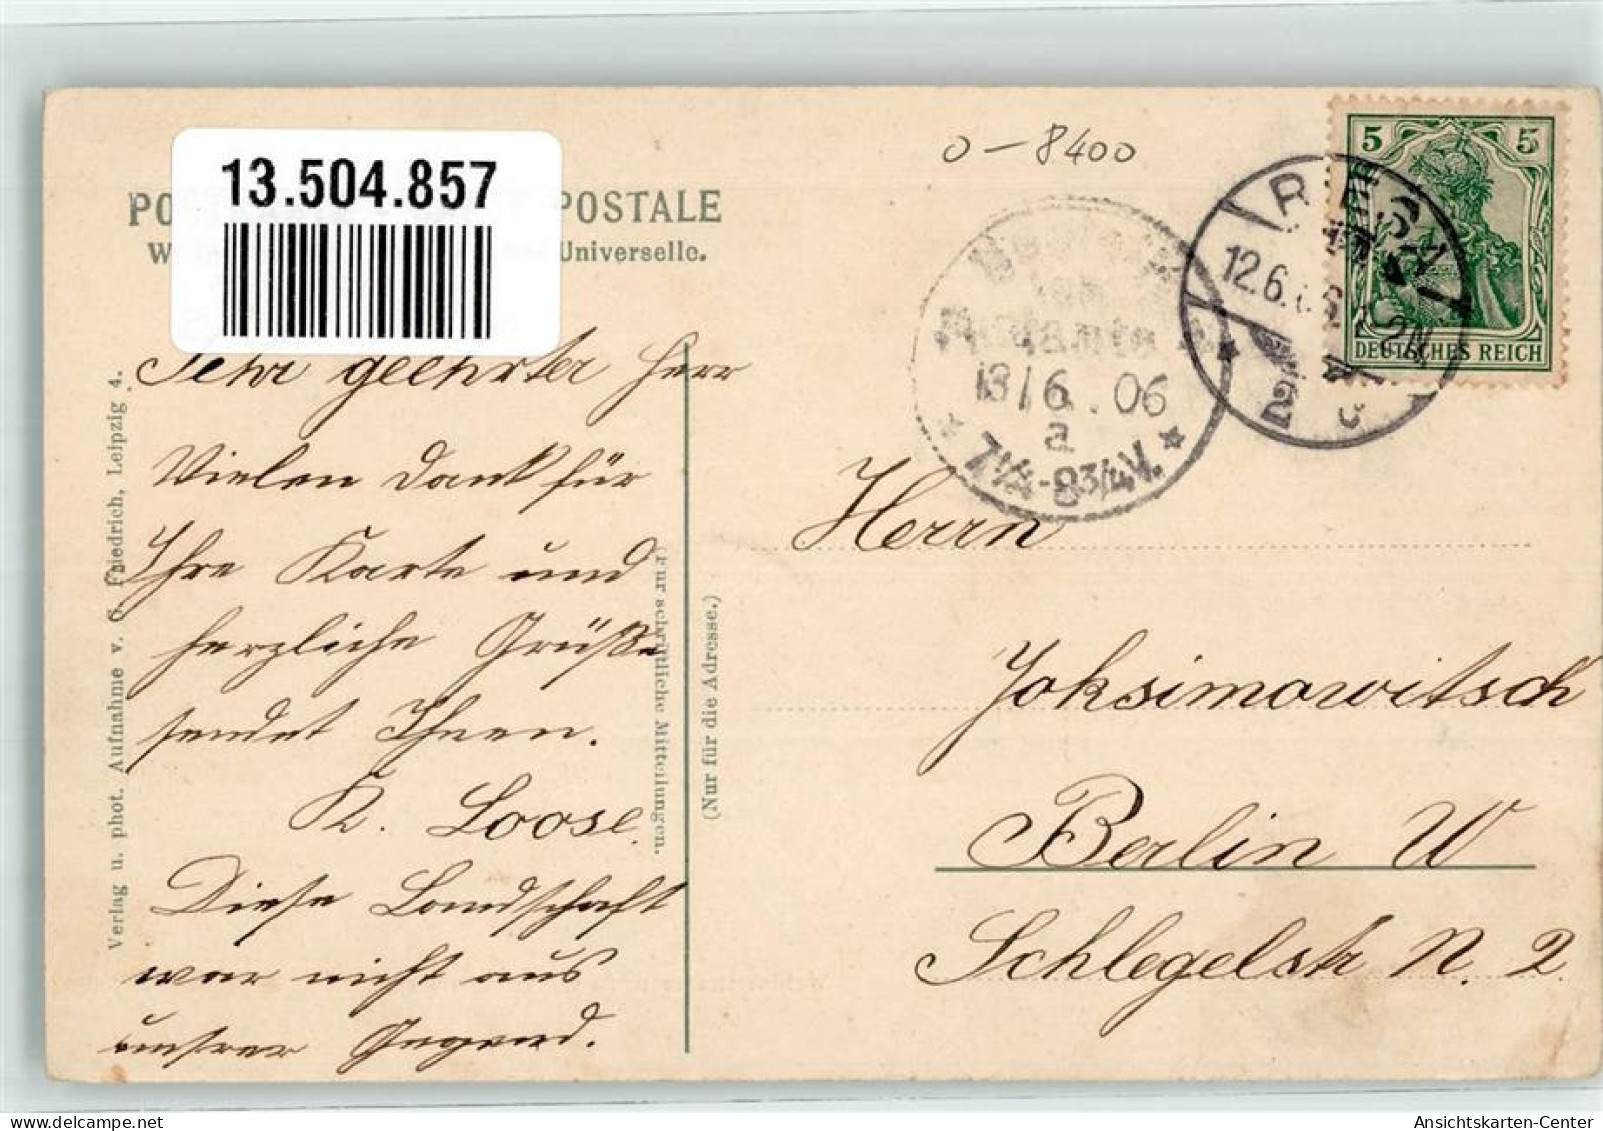 13.504.857
POSTALE
Universelle.
0-8400
5 5
DEUTSCHES REICH
RIESA
12.6.
2
13/6.06
a
7½-8¾V.
Sehr geehrter Herr
Vielen Dank für
Ihre Karte und
herzliche Grüße
sendet Ihnen.
K. Loose.
Diese Landschaft
war nicht aus
unsrer Gegend.
Verlag u. phot. Aufnahme v. G. Friedrich, Leipzig 4.
(Für schriftliche Mitteilungen.
(Nur für die Adresse.)
Herrn
Joksimowitsch
Berlin W
Schlegelstr N. 2.
Ansichtskarten-Center